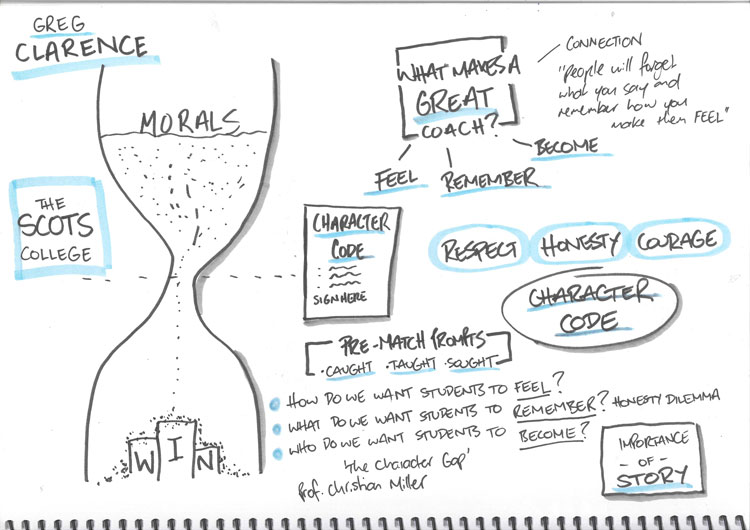 GREG
CLARENCE
MORALS
THE
SCOTS
COLLEGE
W I N
WHAT MAKES A
GREAT
COACH?
CONNECTION
"People will forget
what you say and
remember how you
make them FEEL"
FEEL
REMEMBER
BECOME
CHARACTER
CODE
SIGN HERE
RESPECT
HONESTY
COURAGE
CHARACTER
CODE
PRE-MATCH PROMPTS
·CAUGHT ·TAUGHT ·SOUGHT
HOW DO WE WANT STUDENTS TO FEEL?
WHAT DO WE WANT STUDENTS TO REMEMBER? HONESTY DILEMMA
WHO DO WE WANT STUDENTS TO BECOME?
'The Character Gap'
Prof. Christian Miller
IMPORTANCE
- OF -
STORY